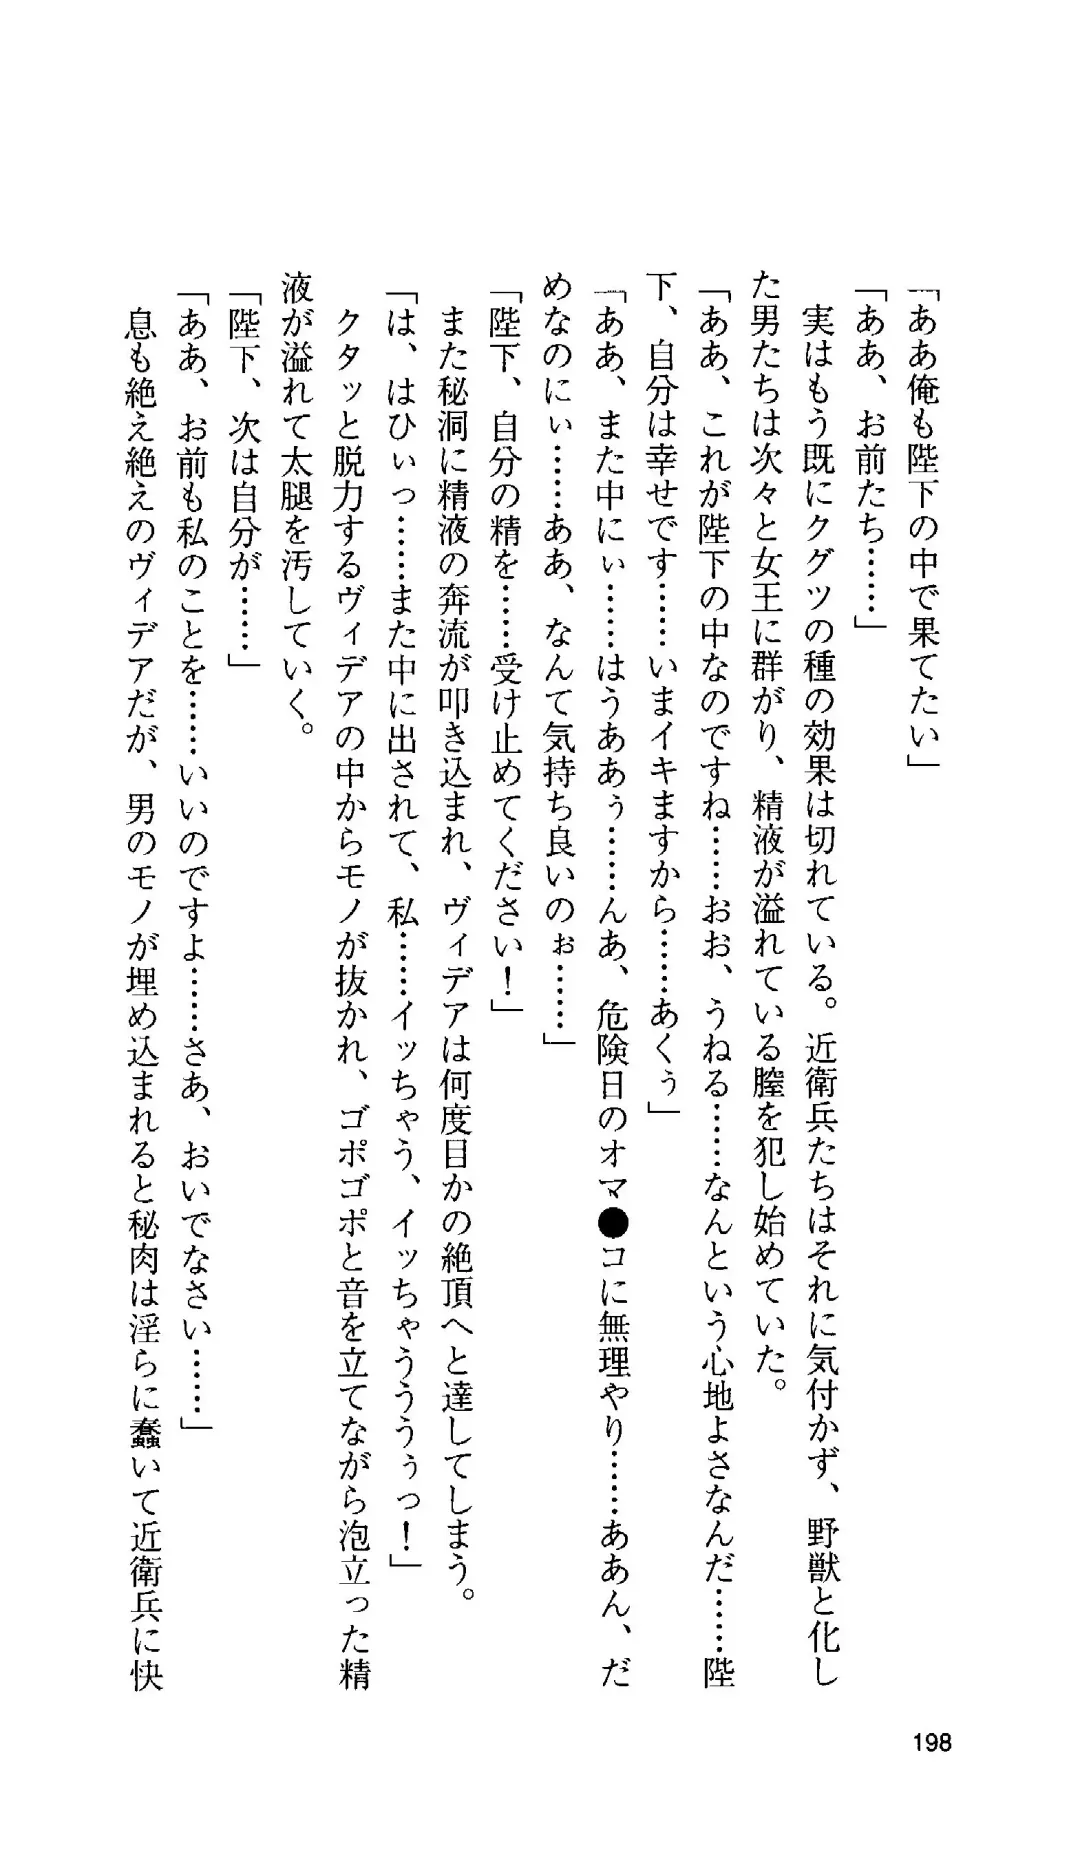 「ああ俺も陛下の中で果てたい」
「ああ、お前たち……」
　実はもう既にクグツの種の効果は切れている。近衛兵たちはそれに気付かず、野獣と化し
た男たちは次々と女王に群がり、精液が溢れている膣を犯し始めていた。
「ああ、これが陛下の中なのですね……おお、うねる……なんという心地よさなんだ……陛
下、自分は幸せです……いまイキますから……あくぅ」
「ああ、また中にぃ……はうあぁぅ……んあ、危険日のオマ●コに無理やり……ああん、だ
めなのにぃ……ああ、なんて気持ち良いのぉ……」
「陛下、自分の精を……受け止めてください！」
　また秘洞に精液の奔流が叩き込まれ、ヴィデアは何度目かの絶頂へと達してしまう。
「は、はひぃっ……また中に出されて、私……イッちゃう、イッちゃうううぅっ！」
　クタッと脱力するヴィデアの中からモノが抜かれ、ゴポゴポと音を立てながら泡立った精
液が溢れて太腿を汚していく。
「陛下、次は自分が……」
「ああ、お前も私のことを……いいのですよ……さあ、おいでなさい……」
　息も絶え絶えのヴィデアだが、男のモノが埋め込まれると秘肉は淫らに蠢いて近衛兵に快
198